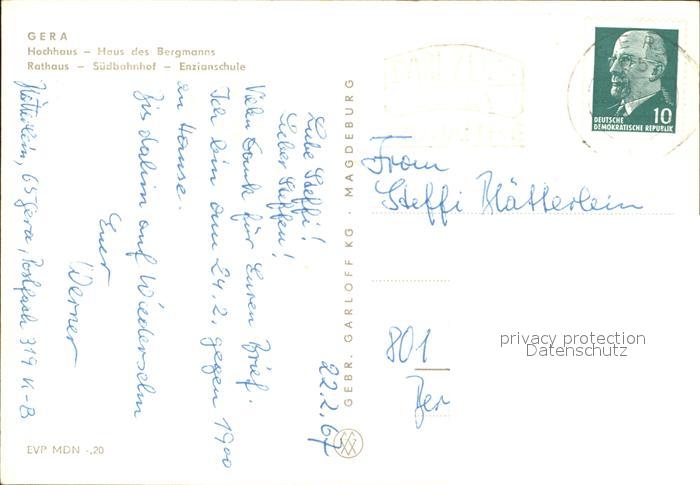 GERA
Hochhaus – Haus des Bergmanns
Rathaus – Südbahnhof – Enzianschule
22.2.67
Liebe Steffi!
Lieber Steffen!
Vielen Dank für Euren Brief.
Ich bin am 24.2. gegen 1900
zu Hause.
Bis dahin auf Wiedersehn
Euer
Werner
Blätterlein, 65 Gera, Postfach 319 K-B
EVP MDN -,20
GEBR. GARLOFF KG · MAGDEBURG
DEUTSCHE
DEMOKRATISCHE REPUBLIK
10
Frau
Steffi Blätterlein
801
privacy protection
Datenschutz